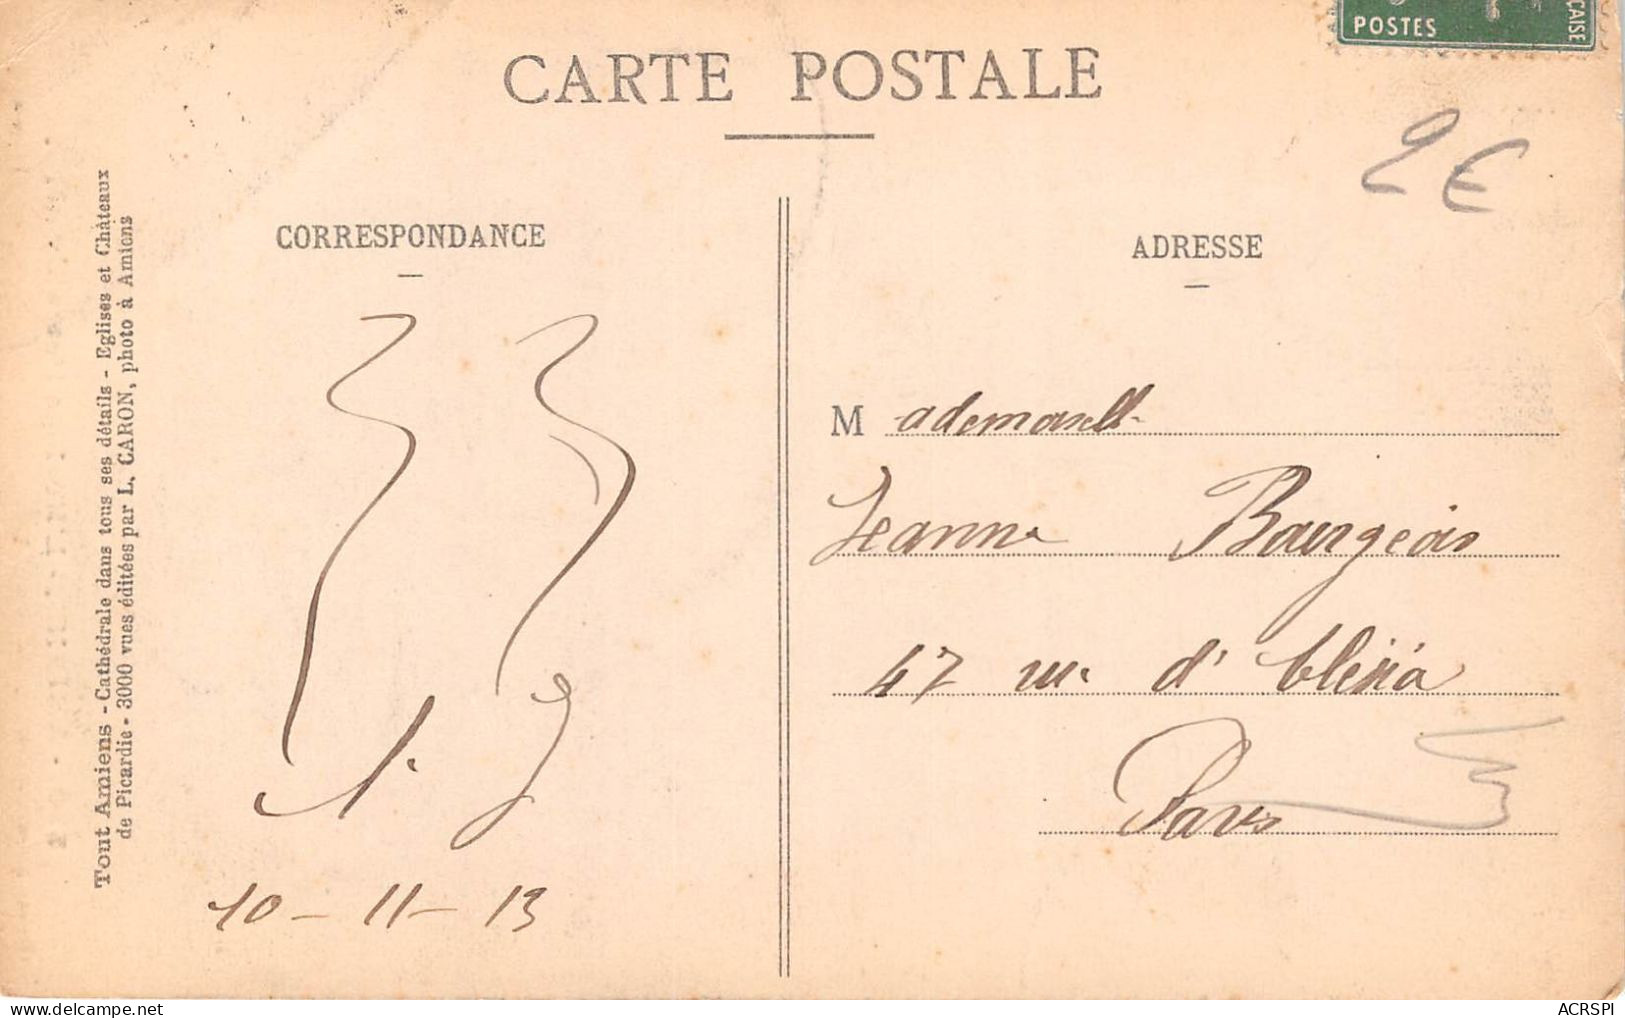 POSTES
ÇAISE
CARTE POSTALE
2€
CORRESPONDANCE
ADRESSE
Tout Amiens - Cathédrale dans tous ses détails - Eglises et Châteaux
de Picardie - 3000 vues éditées par L. CARON, photo à Amiens
10 - 11 - 13
Mademoiselle
Jeanne Bourgeois
47 rue d'
Paris
www.delcampe.net
ACRSPI